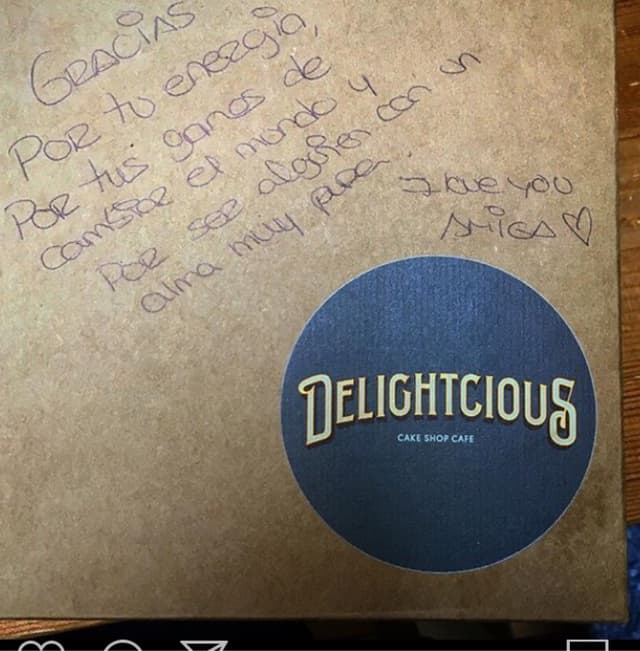 GRACIAS
POR tu energia,
POR tus ganas de
cambiar el mundo y
POR ser alguien con un
alma muy pura.
I love you
AMIGA ♡
DELIGHTCIOUS
CAKE SHOP CAFE